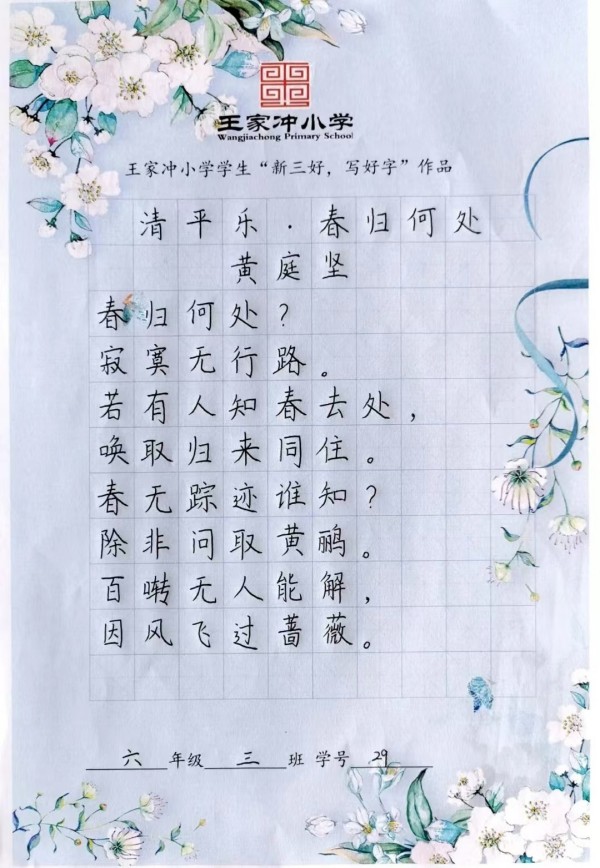 王家冲小学
Wangjiachong Primary School
王家冲小学学生“新三好，写好字”作品
清平乐·春归何处
黄庭坚
春归何处？
寂寞无行路。
若有人知春去处，
唤取归来同住。
春无踪迹谁知？
除非问取黄鹂。
百啭无人能解，
因风飞过蔷薇。
六年级三班 学号29